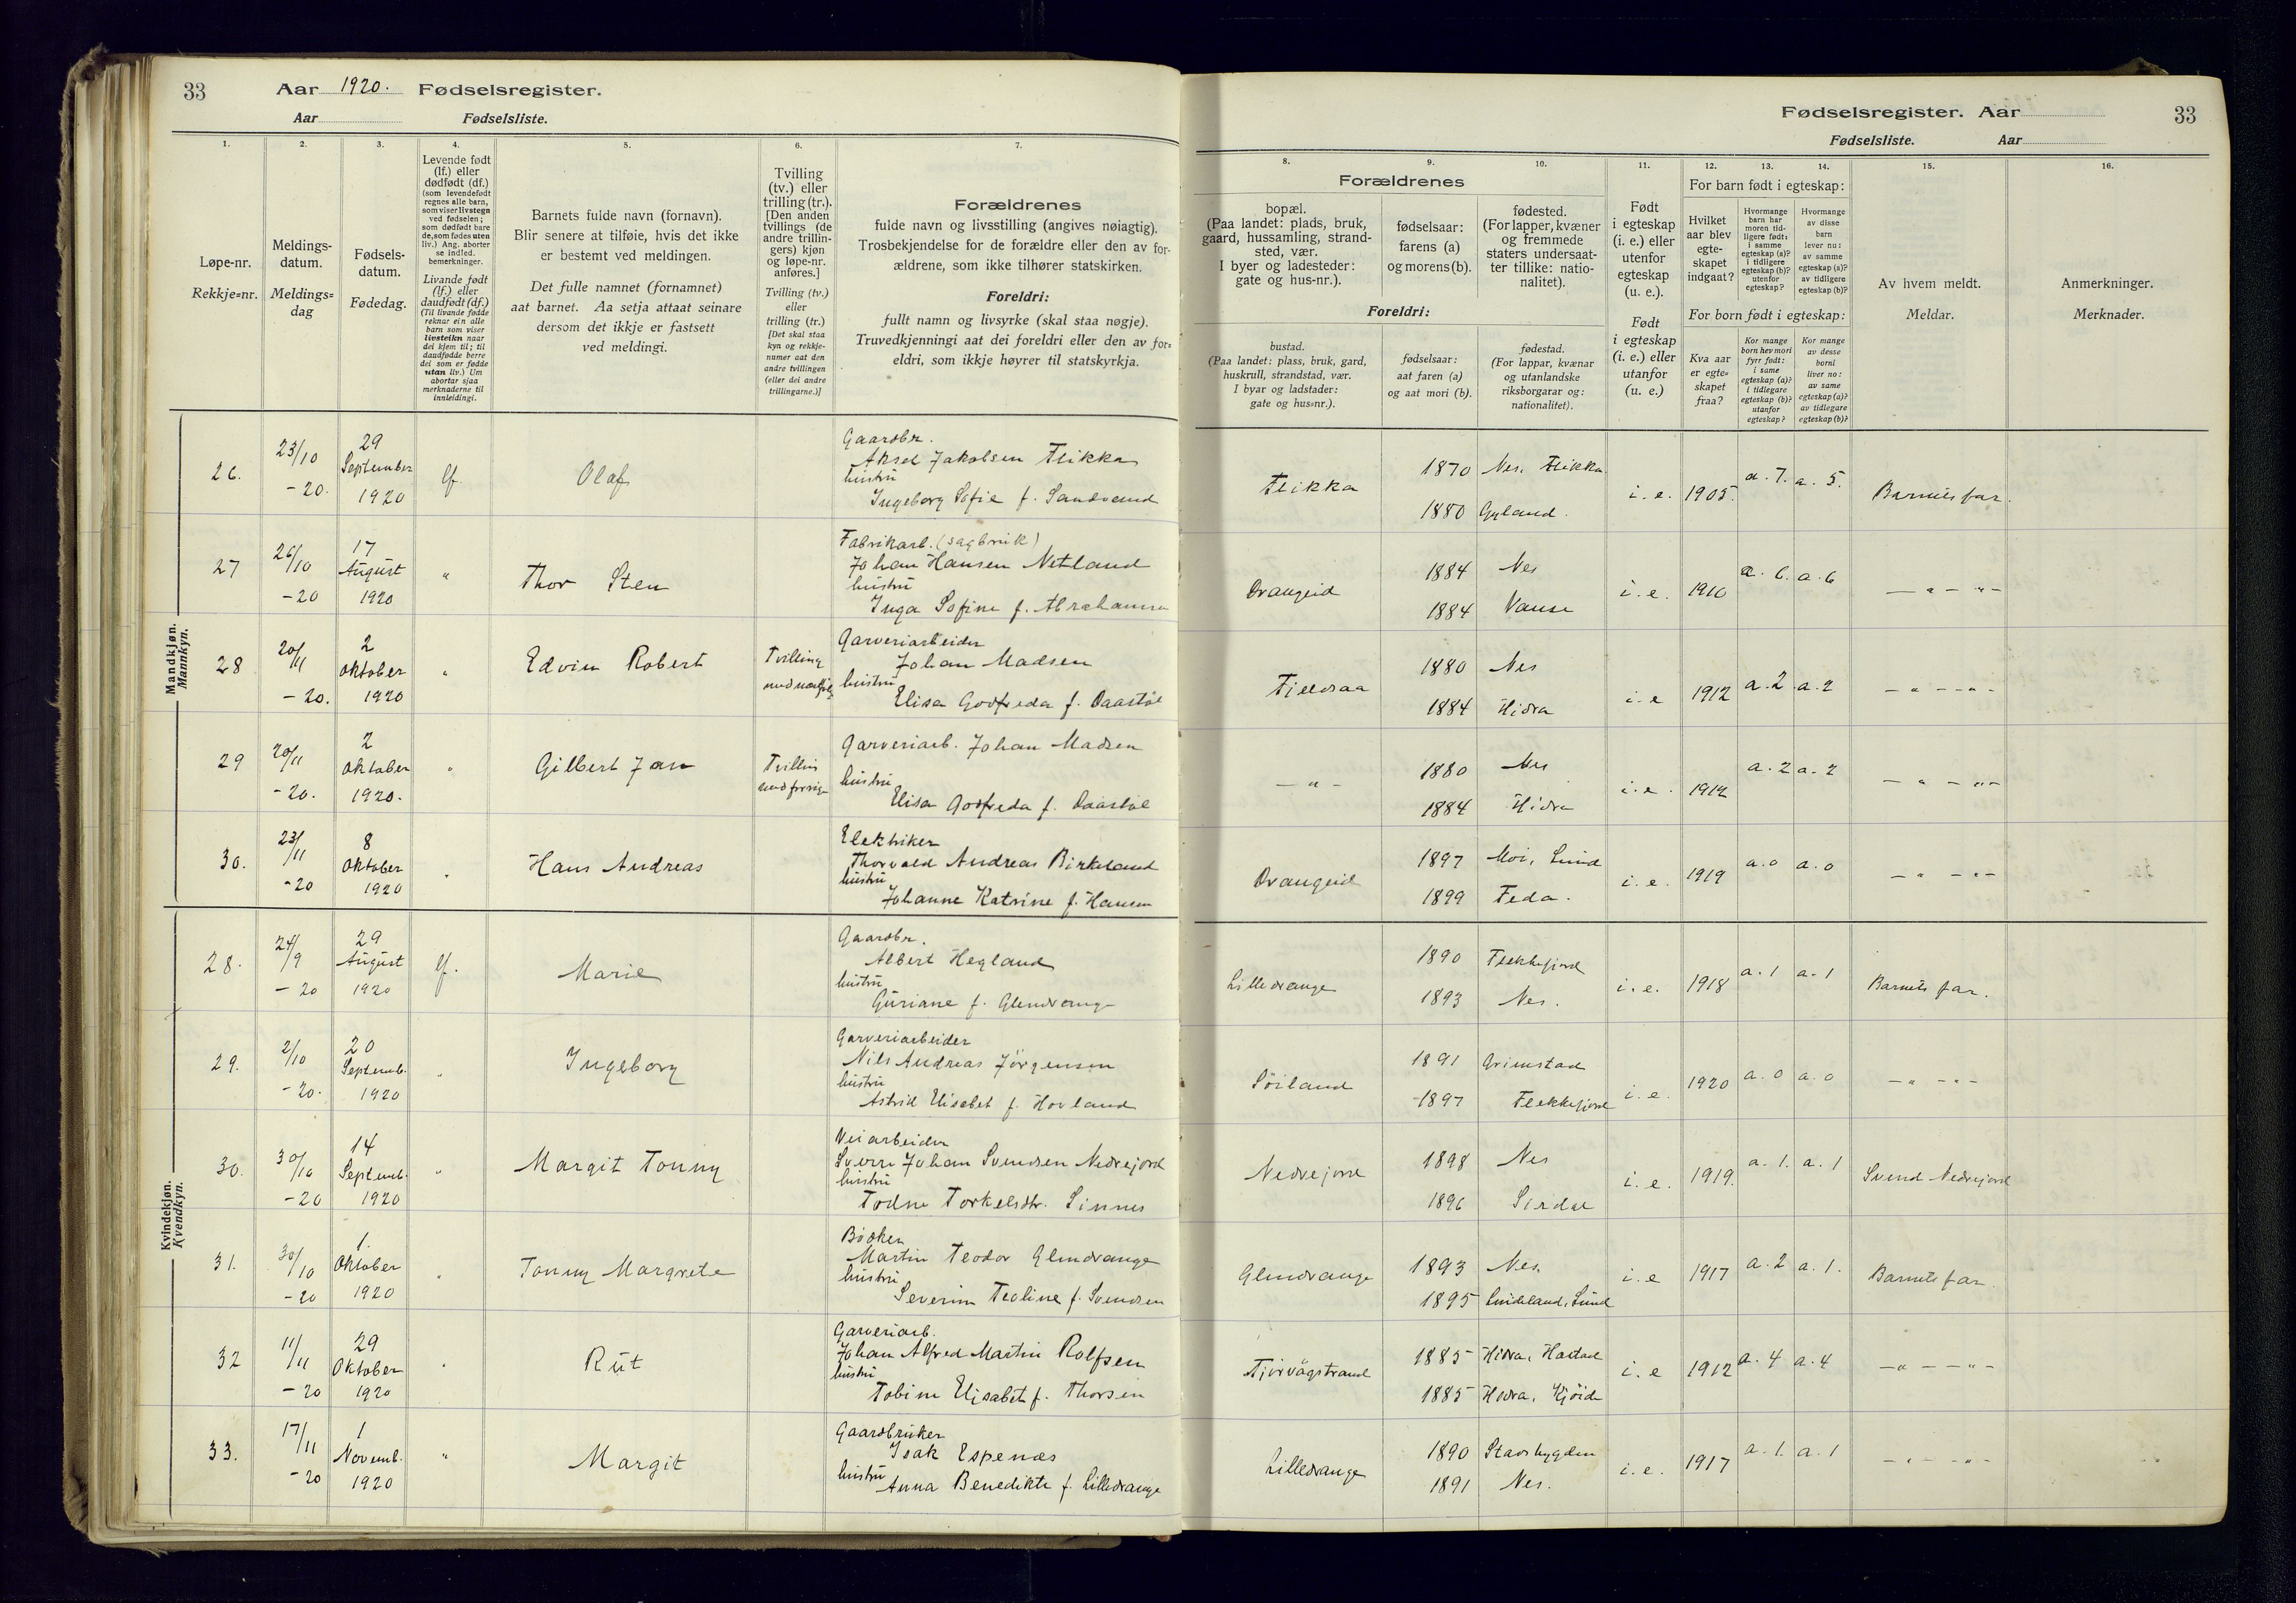 33
Aar 1920. Fødselsregister.
Aar Fødselsliste.
1.
2.
3.
4.
5.
6.
7.
Løpe-nr.
Rekkje=nr.
Meldings-
datum.
Meldings=
dag
Fødsels-
datum.
Fødedag.
Levende født
(lf.) eller
dødfødt (df.)
(som levendefødt
regnes alle barn,
som viser livstegn
ved fødselen;
som dødfødt bare
de, som fødes uten
liv.) Ang. aborter
se indled.
bemerkninger.
Livande født
(lf.) eller
daudfødt (df.)
(Til livande fødde
reknar ein alle
barn som viser
livsteikn naar
dei kjem til; til
daudfødde berre
dei som er fødde
utan liv.) Um
abortar sjaa
merknaderne til
innleidingi.
Barnets fulde navn (fornavn).
Blir senere at tilføie, hvis det ikke
er bestemt ved meldingen.
Det fulle namnet (fornamnet)
aat barnet. Aa setja attaat seinare
dersom det ikkje er fastsett
ved meldingi.
Tvilling
(tv.) eller
trilling (tr.).
[Den anden
tvillings (de
andre trillin-
gers) kjøn
og løpe-nr.
anføres.]
Tvilling (tv.)
eller
trilling (tr.)
[Det skal staa
kyn og rekkje-
numer aat den
andre tvillingen
(eller dei andre
trillingarne.)]
Forældrenes
fulde navn og livsstilling (angives nøiagtig).
Trosbekjendelse for de forældre eller den av for-
ældrene, som ikke tilhører statskirken.
Foreldri:
fullt namn og livsyrke (skal staa nøgje).
Truvedkjenningi aat dei foreldri eller den av for=
eldri, som ikkje høyrer til statskyrkja.
Mandkjøn.
Mannkyn.
26. 23/10 -20. 29 September 1920 lf. Olaf
Gaardbr.
Aksel Jakobsen Flikka
hustru
Ingeborg Sofie f. Sandvand
27 26/10 -20 17 August 1920 " Thor Sten
Fabrikarb. (sagbruk)
Johan Hansen Netland
hustru
Inga Sofine f. Abrahamsen
28 20/11 -20. 2 Oktober 1920 " Edvin Robert Tvilling
Garveriarbeider
Johan Madsen
hustru
Elisa Godfreda f. Daastøl
29 20/11 -20. 2 Oktober 1920. " Gilbert Jan Tvilling med forrige
Garveriarb. Johan Madsen
hustru
Elisa Godfreda f. Daastøl
30. 23/11 -20 8 Oktober 1920 " Hans Andreas
Elektriker
Thorvald Andreas Birkeland
hustru
Johanne Katrine f. Hansen
Kvindekjøn.
Kvendkyn.
28. 24/9 -20 29 August 1920 lf. Marie
Gaardbr.
Albert Hegland
hustru
Guriane f. Glendrange
29. 2/10 -20. 20 Septemb. 1920 " Ingeborg
Garveriarbeider
Nils Andreas Jörgensen
hustru
Astrid Elisabet f. Hovland
30. 30/10 -20 14 Septemb. 1920 " Margit Tonny
Veiarbeider
Sverre Johan Svendsen Nedrejord
hustru
Todne Torkelsdtr. Sinnes
31. 30/10 -20 1. Oktober 1920 " Tonny Margrete
Bödker
Martin Teodor Glendrange
hustru
Severine Teoline f. Svendsen
32 11/11 -20 29 Oktober 1920 " Rut
Garveriarb.
Johan Alfred Martin Rolfsen
hustru
Tobine Elisabet f. Thorsen
33. 17/11 -20 1 Novemb. 1920 " Margit
Gaardbruker
Isak Espenæs
hustru
Anna Benedikte f. Lilledrange
Fødselsregister. Aar 33
Fødselsliste. Aar
8.
9.
10.
11.
12.
13.
14.
15.
16.
Forældrenes
bopæl.
(Paa landet: plads, bruk,
gaard, hussamling, strand-
sted, vær.
I byer og ladesteder:
gate og hus-nr.).
fødselsaar:
farens (a)
og morens (b).
fødested.
(For lapper, kvæner
og fremmede
staters undersaat-
ter tillike: natio-
nalitet).
Foreldri:
bustad.
(Paa landet: plass, bruk, gard,
huskrull, strandstad, vær.
I byar og ladstader:
gate og hus=nr.).
fødselsaar:
aat faren (a)
og aat mori (b).
fødestad.
(For lappar, kvænar
og utanlandske
riksborgarar og:
nationalitet).
Født
i egteskap
(i. e.) eller
utenfor
egteskap
(u. e.).
Født
i egteskap
(i. e.) eller
utanfor
(u. e.)
For barn født i egteskap:
Hvilket
aar blev
egte-
skapet
indgaat?
Hvormange
barn har
moren tid-
ligere født:
i samme
egteskap (a)?
i tidligere
egteskap (b)?
utenfor
egteskap?
Hvormange
av disse
barn
lever nu:
av samme
egteskap (a)?
av tidligere
egteskap (b)?
For born født i egteskap:
Kva aar
er egte=
skapet
fraa?
Kor mange
born hev mori
fyrr født:
i same
egteskap (a)?
i tidlegare
egteskap (b)?
utanfor
egteskap?
Kor mange
av desse
borni
liver no:
av same
egteskap (a)?
av tidlegare
egteskap (b)?
Av hvem meldt.
Meldar.
Anmerkninger.
Merknader.
Flikka 1870 Nes. Flikka i. e. 1905. a. 7. a. 5. Barnets far.
1880 Gyland.
Drangeid 1884 Nes i. e. 1910 a. 6. a. 6 — " — " —
1884 Vanse
Fjeldsaa 1880 Nes i. e 1912 a. 2 a. 2 — " — " —
1884 Hidra
— " — 1880 Nes i. e. 1912 a. 2 a. 2 — " — " —
1884 Hidra
Drangeid 1897 Moi, Lund i. e. 1919 a. 0 a. 0 — " — " —
1899 Feda.
Lilledrange 1890 Flekkefjord i. e. 1918 a. 1 a. 1 Barnets far.
1893 Nes.
Söiland 1891 Grimstad i. e. 1920 a. 0 a. 0 — " — " —
1897 Flekkefjord
Nedrejord 1898 Nes i. e. 1919. a. 1. a. 1 Svend Nedrejord
1896 Sirdal
Glendrange 1893 Nes. i. e 1917 a. 2 a. 1. Barnets far.
1895 Lindeland, Lund
Tjörvågstrand 1885 Hidra, i. e 1912 a. 4 a. 4 — " — " —
1885 Hidra.
Lilledrange 1890 Stadsbygden i. e. 1917 a. 1. a. 1 — " — " —
1891 Nes.